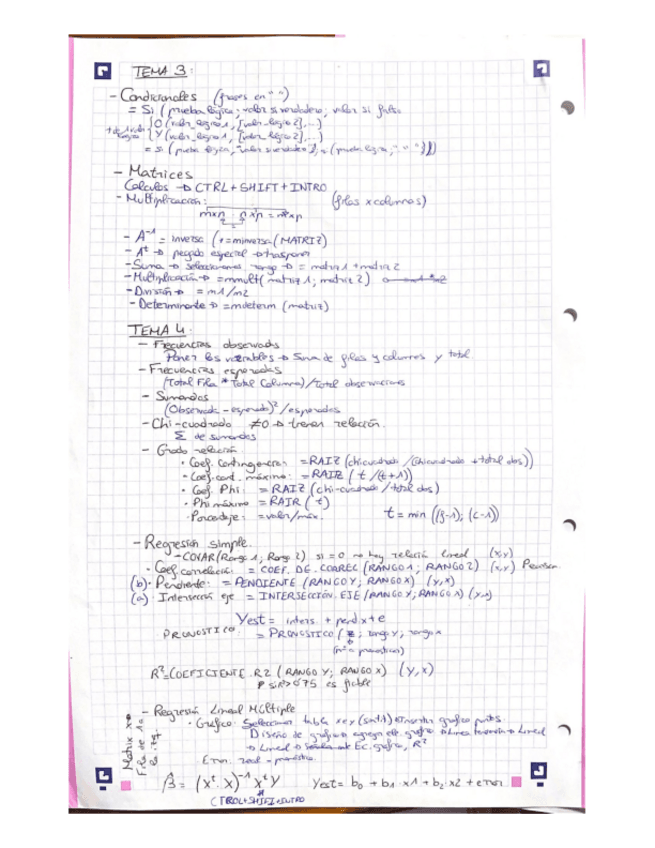 TEMA 3:
- Condicionales (frases en " ")
= Si (prueba lógica; valor si verdadero; valor si falso
O (valor_lógico1, [valor_lógico2],...)
Y (valor_lógico1, [valor_lógico2],...)
= si (prueba lógica; "valor si verdadero"; = (prueba lógica; " "
- Matrices
Calculos → CTRL + SHIFT + INTRO
- Multiplicación: (filas x columnas)
mxn · nxp = mxp
- A⁻¹ = inversa (+=minversa(MATRIZ)
- Aᵗ → pegado especial → trasponer
- Suma → seleccionamos rango → = matriz1 + matriz2
- Multiplicación → =mmult(matriz 1; matriz 2)
- División → = m1/m2
- Determinante → =mdeterm (matriz)
TEMA 4:
- Frecuencias observadas
Poner las variables → Suma de filas y columnas y total
- Frecuencias esperadas
(Total Fila * Total Columna)/total observaciones
- Sumandos
(Observada - esperada)²/esperadas
- Chi-cuadrado ≠0 → tienen relación.
Σ de sumandos
- Grado relación
· Coef. Contingencia: =RAIZ (chicuadrado/(chicuadrado + total obs))
· Coef. cont. máximo: =RAIZ (t/(t+1))
· Coef. Phi: = RAIZ (chi-cuadrado/total obs)
· Phi máximo = RAIZ (t)
· Porcentaje: = valor/máx. t = min ((f-1); (c-1))
- Regresión simple.
- COVAR(Rango 1; Rango 2) si = 0 no hay relación lineal (x,y)
· Coef. correlación: = COEF. DE. CORREL (RANGO 1; RANGO 2) (x,y) Pearson
(b) · Pendiente: = PENDIENTE (RANGO Y; RANGO X) (y,x)
(a) · Intersección eje = INTERSECCIÓN. EJE (RANGO Y; RANGO X) (y,x)
Yest = inters. + pend.x + e
PRONOSTICO: = PRONOSTICO ( ; rango y; rango x
R² = COEFICIENTE. R2 (RANGO Y; RANGO X) (y,x)
si R>0'75 es fiable
- Regresión Lineal Múltiple
· Gráfico: Seleccionar tabla x e y (sin 1) → Insertar gráfico puntos
Diseño de gráfico → agregar ele. gráfico → Linea tendencia → Lineal
→ Lineal → Ec. gráfico, R²
Error: real - pronóstico
Matriz x →
Fila de 1a
β̂ = (xᵗ · x)⁻¹ xᵗ y Yest = b₀ + b₁ · x1 + b₂ · x2 + error
CTROL+SHIFT+INTRO